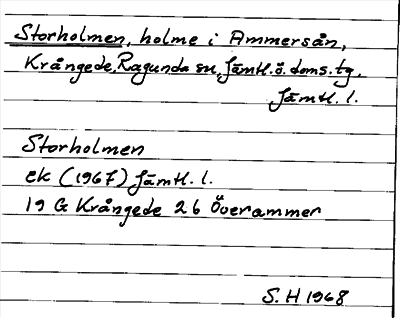 Storholmen, holme i Ammersån,
Krångede, Ragunda sn, Jämtl. ö. doms. tg,
Jämtl. l.
Storholmen
ek (1967) Jämtl. l.
19 G Krångede 26 Överammer
S. H 1968